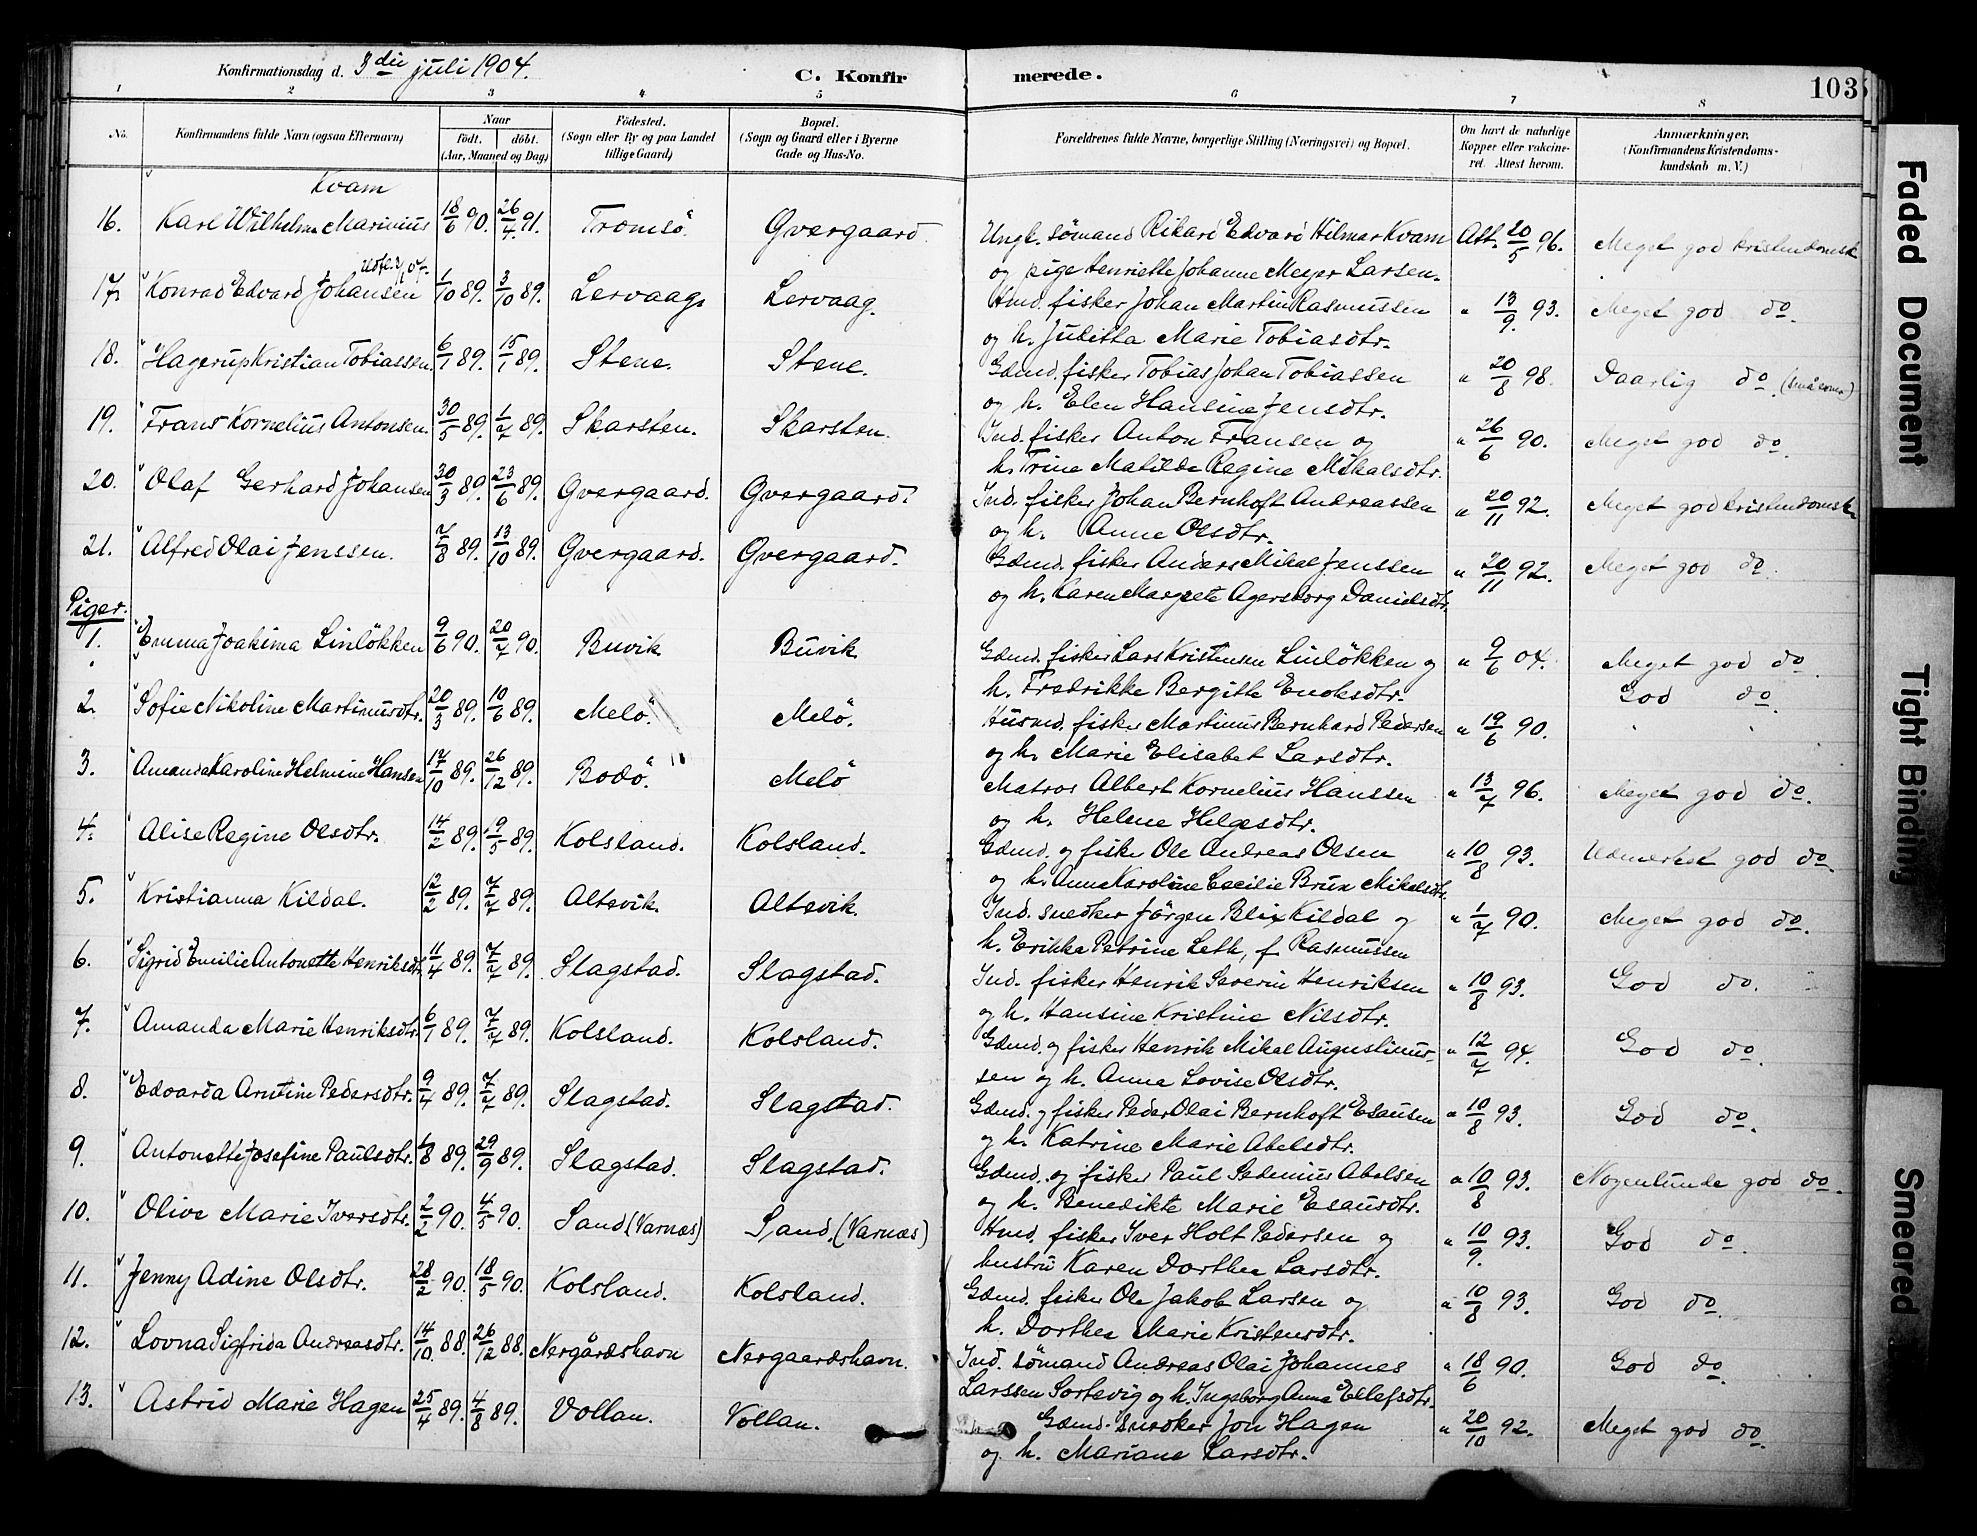 Konfirmationsdag d. 3die juli 1904.
C. Konfir merede. 103
1 2 3 4 5 6 7 8
No. Konfirmandens fulde Navn (ogsaa Efternavn) Naar født. døbt. (Aar, Maaned og Dag) Fødested. (Sogn eller By og paa Landet tillige Gaard) Bopæl. (Sogn og Gaard eller i Byerne Gade og Hus-No. Forældrenes fulde Navne, borgerlige Stilling (Næringsvei) og Bopæl. Om havt de naturlige Kopper eller vakcineret. Attest herom. Anmærkninger. (Konfirmandens Kristendomskundskab m. V.)
Kvam
16. Karl Wilhelm Marinius 18/6 90. 26/4 91. Tromsö. Gvergaard. Ungk. sömand Rikard Edvard Hilmar Kvam Att. 20/5 96. Meget god kristendomsk
og pige Henriette Johanne Meyer Larsen.
17. Konrad Edvard Johansen 1/10 89. 3/10 89. Lervaag. Lervaag. Hmd. fisker Johan Martin Rasmussen " 13/9 93. Meget god do.
og h. Julitta Marie Tobiasdtr.
18. Hagerup Kristian Tobiassen. 6/1 89. 15/1 89. Stene. Stene. Gdmd. fisker Tobias Johan Tobiassen " 20/8 98. Daarlig do.
og h. Elen Hansine Jensdtr.
19. Frans Kornelius Antonsen. 30/5 89. 1/7 89. Skarsten. Skarsten. Ind. fisker Anton Fransen og " 26/6 90. Meget god do.
h. Trine Matilde Regine Mikalsdtr.
20. Olaf Gerhard Johansen 30/3 89. 23/6 89. Gvergaard. Gvergaard. Ind. fisker Johan Bernhoft Andreassen " 20/11 92. Meget god kristendomsk
og h. Anne Olsdtr.
21. Alfred Olai Jenssen. 7/8 89. 13/10 89. Gvergaard. Gvergaard. Gdmd. fisker Anders Mikal Jenssen " 20/11 92. Meget god do.
og h. Karen Margrete Agersborg Danielsdtr.
Piger.
1. Emma Joakima Linlökken 9/6 90. 20/7 90. Buvik Buvik Gdmd. fisker Lars Kristensen Linlökken og " 9/6 04. Meget god do.
h. Fredrikke Bergitte Enoksdtr.
2. Sofie Nikoline Martinusdtr. 20/3 89. 10/6 89. Melö. Melö. Husmd. fisker Martinus Bernhard Pedersen " 19/6 90. God do.
og h. Marie Elisabet Larsdtr.
3. Amanda Karoline Helmine Hansen 17/10 89. 26/12 89. Bodö. Melö Matros Albert Kornelius Hanssen " 13/7 96. Meget god do.
og h. Helene Helgesdtr.
4. Alise Regine Olsdtr. 14/2 89. 19/5 89. Kolsland. Kolsland. Gdmd. og fisker Ole Andreas Olsen " 10/8 93. Udmerket god do.
og h. Anna Karoline Cecilie Brun Mikalsdtr.
5. Kristianna Kildal. 12/2 89. 7/7 89. Altevik. Altevik. Ind. snedker Jörgen Blix Kildal og " 1/7 90. Meget god do.
h. Erikka Petrine Leth, f Rasmussen
6. Sigrid Emilie Antonette Henriksdtr. 11/4 89. 7/7 89. Slagstad. Slagstad. Ind. fisker Henrik Severin Henriksen " 10/8 93. God do.
og h. Hansine Kristine Nilsdtr.
7. Amanda Marie Henriksdtr. 6/1 89. 7/7 89. Kolsland. Kolsland. Gdmd. og fisker Henrik Mikal Augustinus- " 12/7 94. God do.
sen og h. Anna Lovise Olsdtr.
8. Edvarda Arntine Pedersdtr. 9/4 89. 7/7 89. Slagstad. Slagstad. Gdmd. og fisker Peder Olai Bernhoft Esausen " 10/8 93. God do.
og h. Katrine Marie Abelsdtr.
9. Antonette Josefine Paulsdtr. 1/8 89. 29/9 89. Slagstad. Slagstad. Gdmd. og fisker Paul Sedenius Abelsen " 10/8 93. Nogenlunde god do.
og h. Benedikte Marie Esausdtr.
10. Olive Marie Iversdtr. 2/2 90. 4/5 90. Sand (Varnæs) Sand. (Varnæs) Hmd. fisker Iver Holt Pedersen og " 10/9. 93. God do.
hustru Karen Dorthea Larsdtr.
11. Jenny Adine Olsdtr. 28/2 90. 18/5 90. Kolsland. Kolsland. Gdmd. fisker Ole Jakob Larsen og " 10/8 93. God do.
h. Dorthea Marie Kristensdtr.
12. Lovna Sigfrida Andreasdtr. 14/10. 88. 26/12 88. Nergårdshavn Nergaardshavn. Ind. sömand Andreas Olai Johannes " 18/6 90. God do.
Larssen Sortevig og h. Ingeborg Anna Ellefsdtr.
13. Astrid Marie Hagen 25/4 89. 4/8 89. Vollan. Vollan. Gdmd. snedker Jon Hagen " 20/10 92. Meget god do.
og h. Mariane Larsdtr.
Faded Document
Tight Binding
Smeared